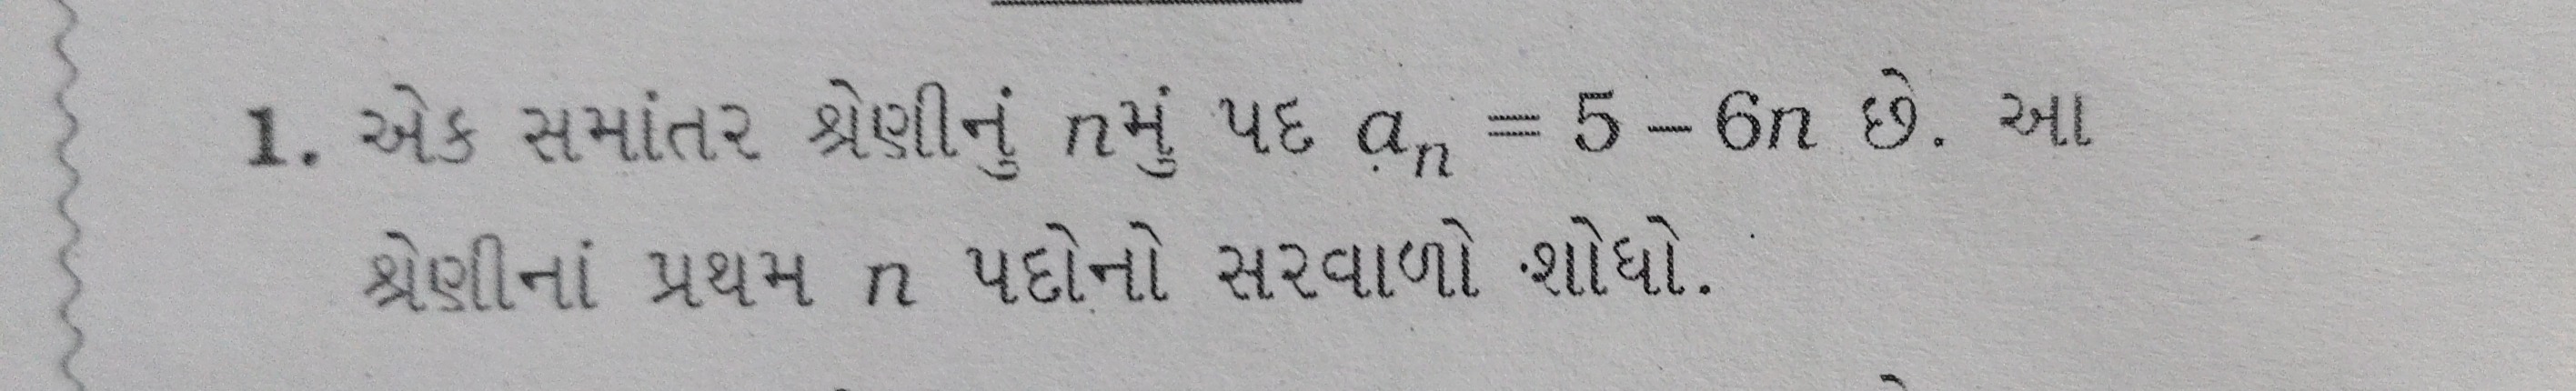 1. એક સમાંતર શ્રેણીનું nમું પદ aₙ = 5 – 6n છે. આ
શ્રેણીનાં પ્રથમ n પદોનો સરવાળો શોધો.